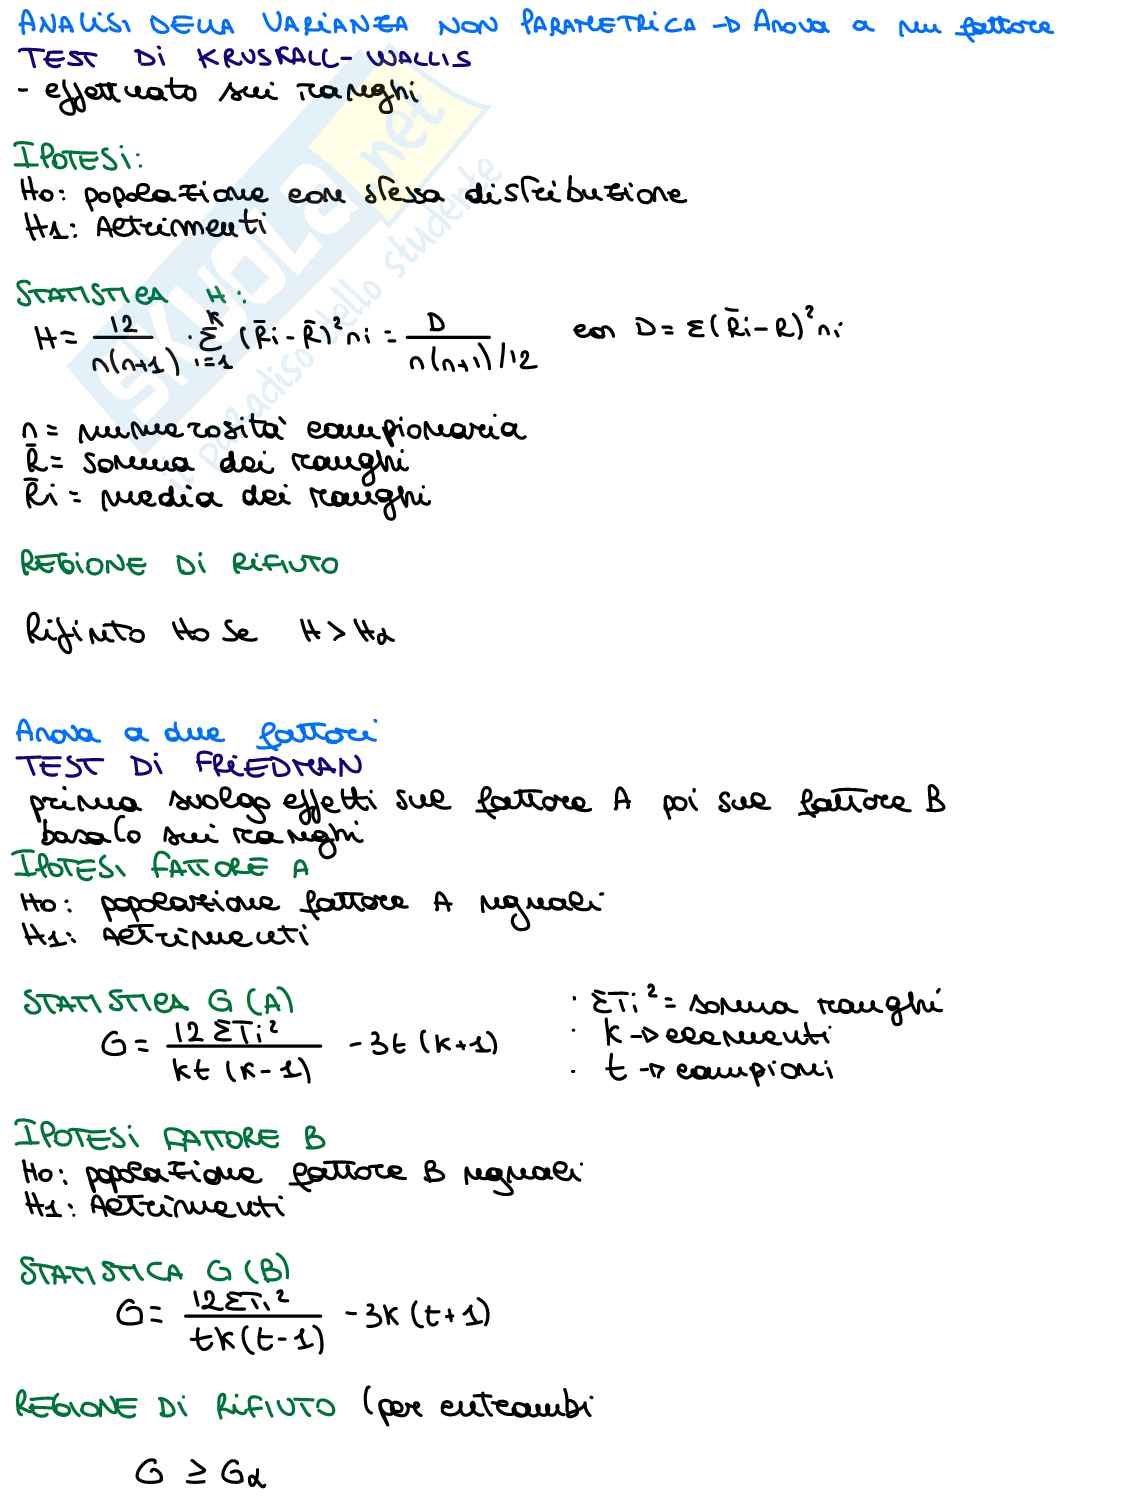 ANALISI DELLA VARIANZA NON PARAMETRICA → Anova a un fattore
TEST DI KRUSKALL-WALLIS
- effettuato sui ranghi
IPOTESI:
H0: popolazione con stessa distribuzione
H1: Altrimenti
STATISTICA H:
H = 12 / n(n+1) · Σ i=1 k (R̄i - R̄)² ni = D / n(n+1)/12 con D = Σ(R̄i - R)² ni
n = numerosità campionaria
R̄ = somma dei ranghi
R̄i = media dei ranghi
REGIONE DI RIFIUTO
Rifiuto H0 se H > Hα
Anova a due fattori
TEST DI FRIEDMAN
prima svolgo effetti sul fattore A poi sul fattore B
basato sui ranghi
IPOTESI FATTORE A
H0: popolazione fattore A uguali
H1: Altrimenti
STATISTICA G (A)
G = 12 ΣTi² / kt (k-1) - 3t (k+1)
· ΣTi² = somma ranghi
· k → elementi
· t → campioni
IPOTESI FATTORE B
H0: popolazione fattore B uguali
H1: Altrimenti
STATISTICA G (B)
G = 12ΣTi² / tk(t-1) - 3k (t+1)
REGIONE DI RIFIUTO (per entrambi
G ≥ Gα
SKUOLA.net
il paradiso dello studente